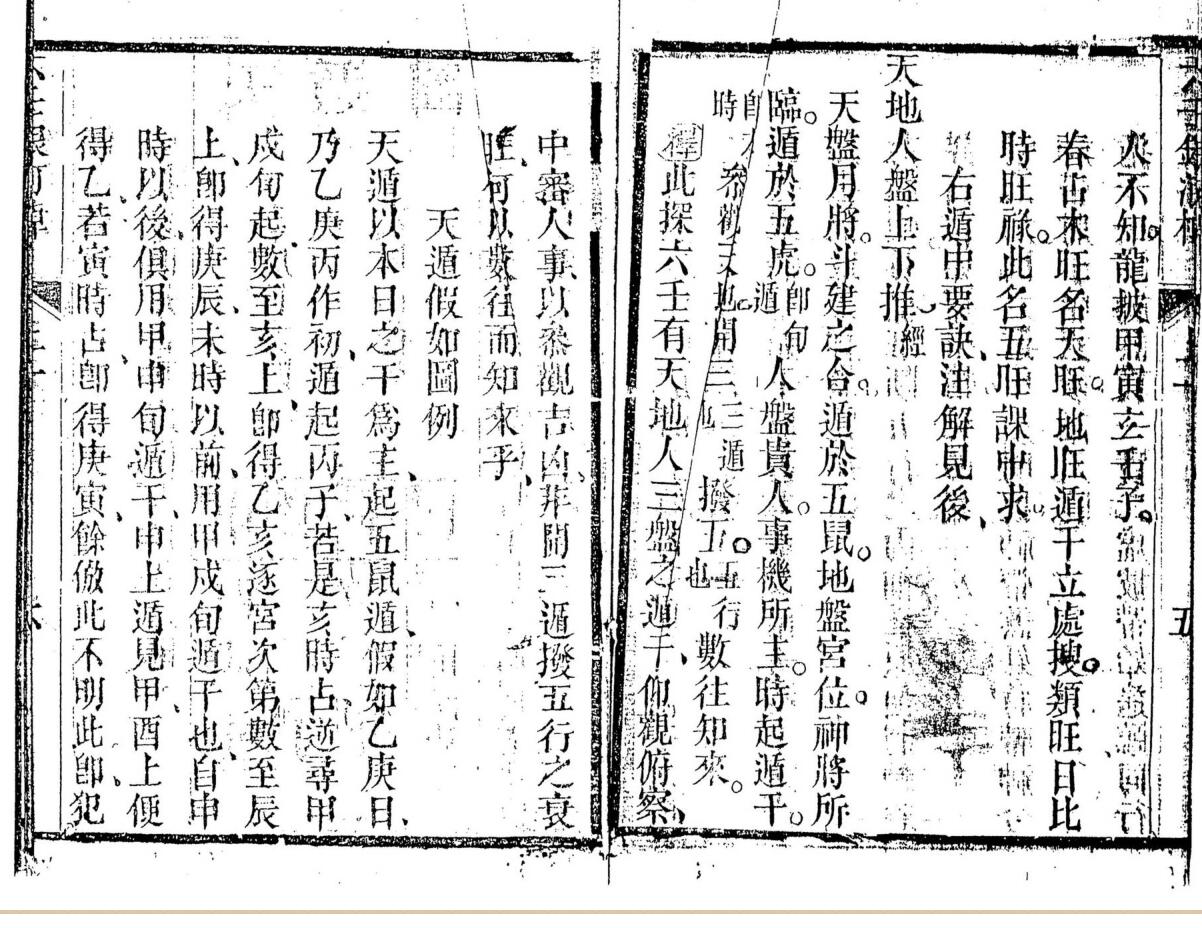 人不知。龍披甲寅玄壬子。
春占木旺名天旺。地旺遁干立處搜。類旺日比
時旺祿。此名五旺課中求。
右遁中要訣、注解見後、
天地人盤上下推、經
天盤月將斗建之合。遁於五鼠。地盤宮位。神將所
臨。遁於五虎。卽旬遁 人盤貴人。事機所主。時起遁干。
時 參觀天地。開三三遁也 撥五。五行也 數往知來。
釋此探六壬有天地人三盤之遁干、仰觀俯察、
中審人事、以參觀吉凶、非開三遁撥五行之衰
旺、何以數往而知來乎、
天遁假如圖例
天遁以本日之干爲主、起五鼠遁、假如乙庚日、
乃乙庚丙作初、遁起丙子、若是亥時占、逆尋甲
戌旬起數至亥上、卽得乙亥、逐宮次第數至辰
上、卽得庚辰、未時以前、用甲戌旬遁干也、自申
時以後、俱用甲申旬遁干、申上遁見甲、酉上便
得乙、若寅時占、卽得庚寅、餘倣此、不明此、卽犯